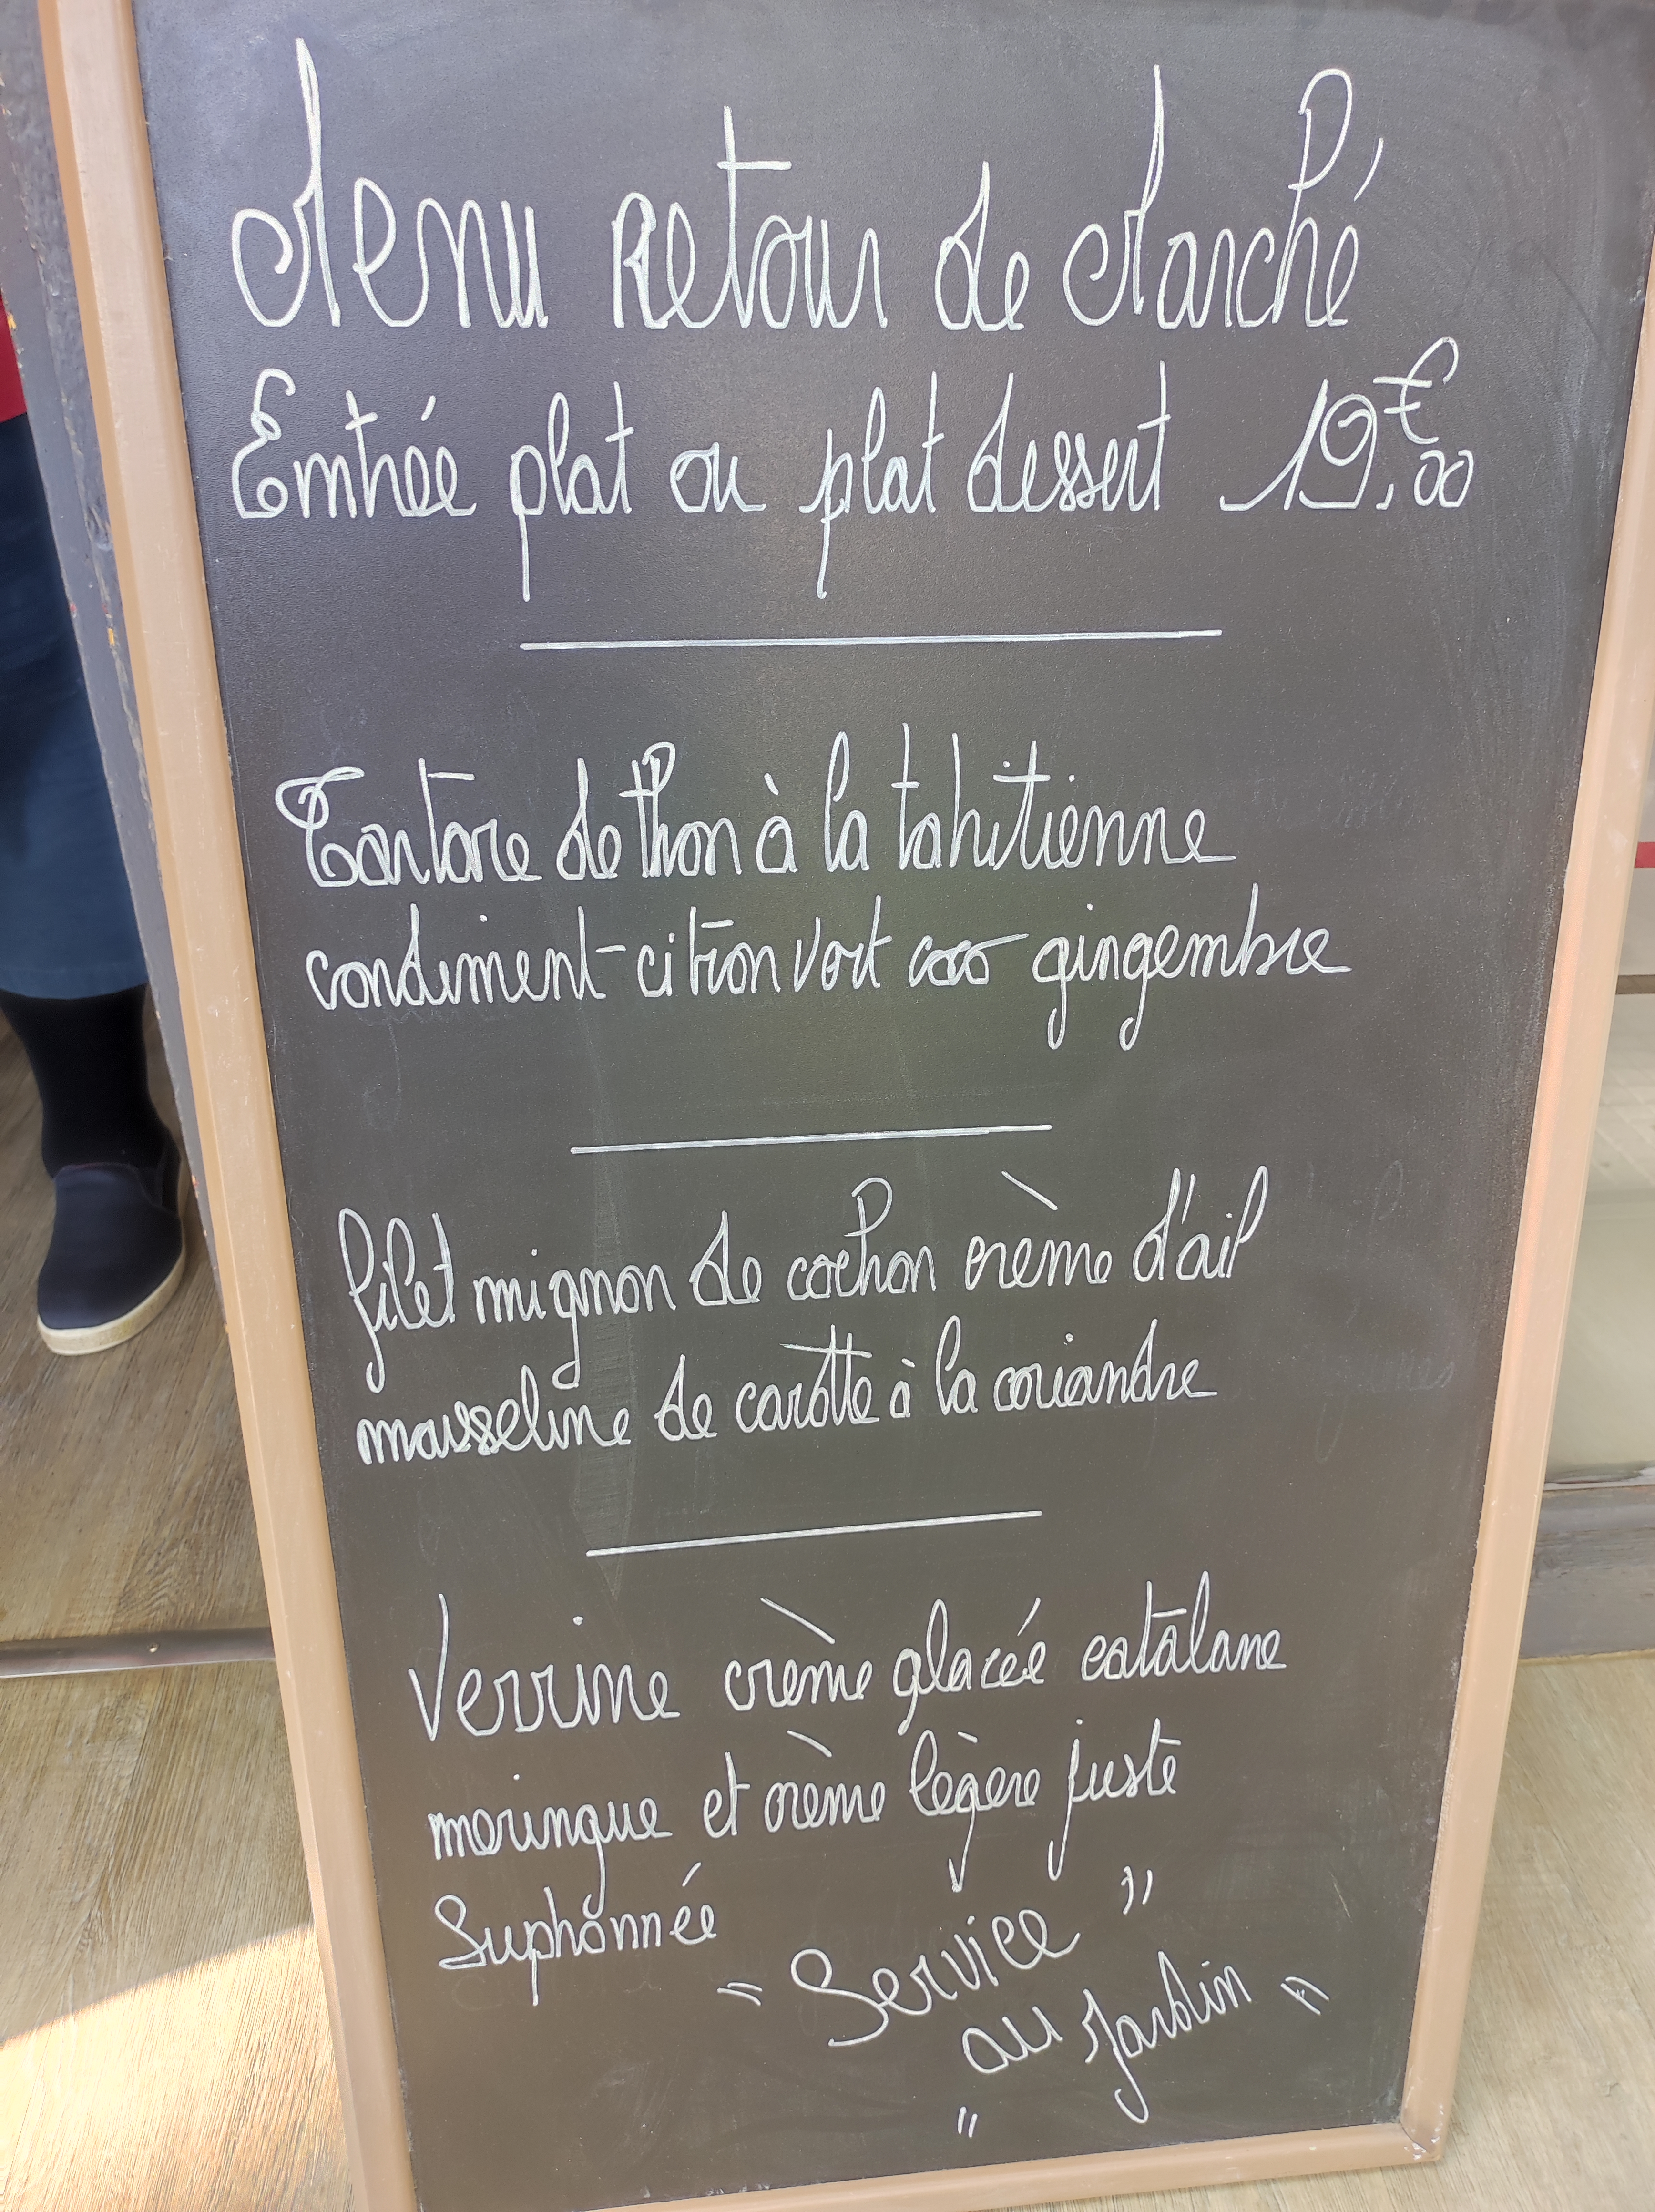 Menu Retour de Marché
Entrée plat ou plat dessert 19,€00
Tartare de thon à la tahitienne
condiment-citron vert coco gingembre
filet mignon de cochon crème d'ail
mousseline de carotte à la coriandre
Verrine crème glacée catalane
meringue et crème légère juste
Suphonnée
"Service"
au Jardin"
"